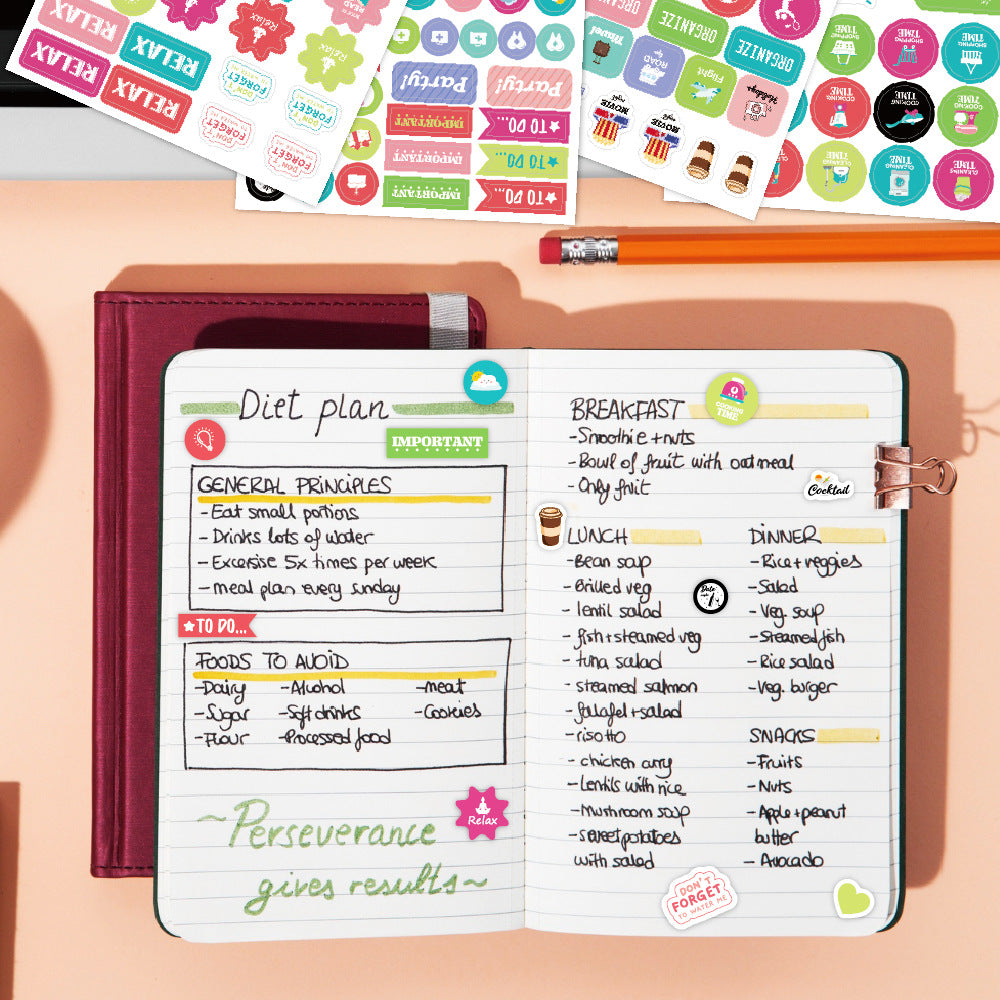 RELAX
RELAX
RELAX
RELAX
Relax
Relax
DON'T
FORGET
DON'T
FORGET
DON'T
FORGET
DON'T
FORGET
Party!
Party!
IMPORTANT
TO DO...
IMPORTANT
TO DO...
IMPORTANT
TO DO...
Travel
ORGANIZE
ORGANIZE
ROAD
Flight
Holidays
MOVIE
night
MOVIE
night
SHOPPING
TIME
SHOPPING
TIME
SHOPPING
TIME
COOKING
TIME
COOKING
TIME
COOKING
TIME
CLEANING
TIME
CLEANING
TIME
CLEANING
TIME
Diet plan
IMPORTANT
GENERAL PRINCIPLES
- Eat small portions
- Drinks lots of water
- Excersise 5x times per week
- meal plan every sunday
TO DO...
FOODS TO AVOID
- Dairy - Alcohol - meat
- Sugar - Soft drinks - Cookies
- Flour - Processed food
~ Perseverance
gives results ~
Relax
BREAKFAST
COOKING
TIME
- Smoothie + nuts
- Bowl of fruit with oatmeal
- Only fruit
Cocktail
LUNCH
- Bean soup
- Grilled veg
- lentil salad
- fish + steamed veg
- tuna salad
- steamed salmon
- falafel + salad
- risotto
- chicken curry
- Lentils with rice
- Mushroom soup
- sweet potatoes
with salad
Date
night
DINNER
- Rice + veggies
- Salad
- Veg. soup
- Steamed fish
- Rice salad
- Veg. burger
SNACKS
- Fruits
- Nuts
- Apple + peanut
butter
- Avocado
DON'T
FORGET
TO WATER ME